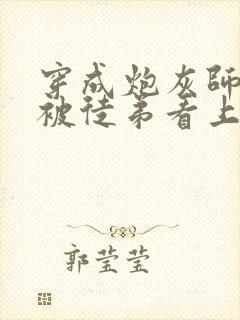 穿成炮灰師
被徒弟看上
郭莹莹